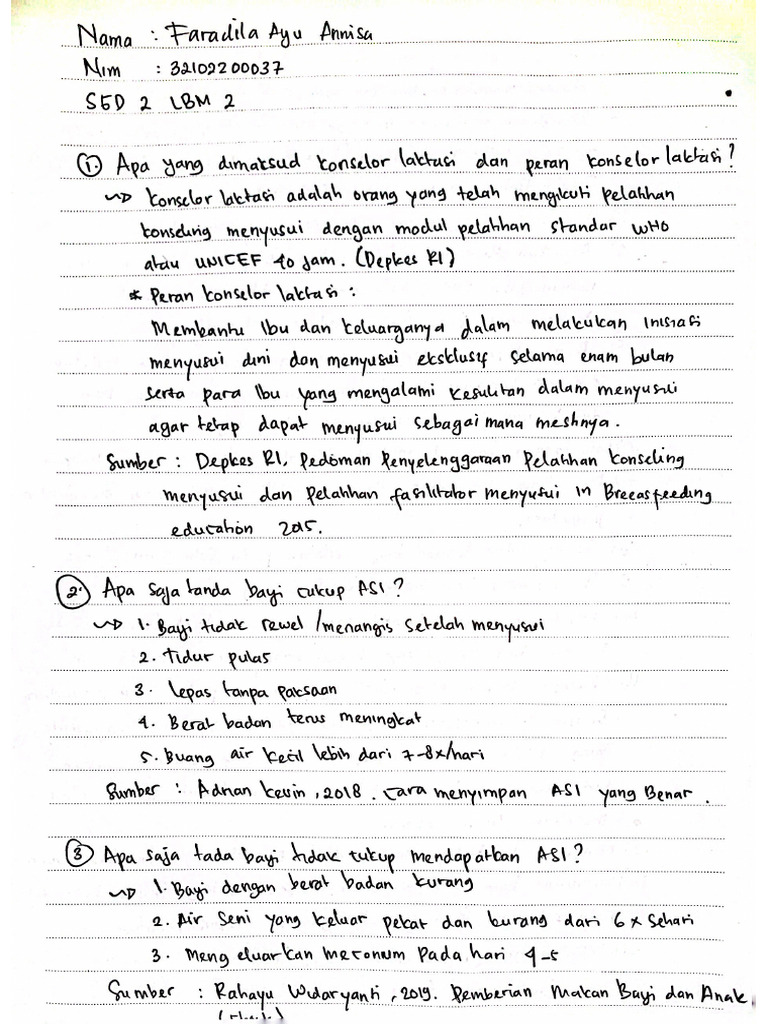 Nama : Faradila Ayu Annisa
Nim : 32102200037
SGD 2 LBM 2
1. Apa yang dimaksud konselor laktasi dan peran konselor laktasi?
→ konselor laktasi adalah orang yang telah mengikuti pelatihan
konseling menyusui dengan modul pelatihan standar WHO
atau UNICEF 40 jam. (Depkes RI)
* Peran konselor laktasi :
Membantu Ibu dan keluarganya dalam melakukan Inisiasi
menyusui dini dan menyusui eksklusif selama enam bulan
serta para Ibu yang mengalami kesulitan dalam menyusui
agar tetap dapat menyusui sebagai mana mestinya.
Sumber : Depkes RI, Pedoman Penyelenggaraan Pelatihan konseling
menyusui dan Pelatihan fasilitator menyusui in Breeasfeeding
education 2015.
2. Apa saja tanda bayi cukup ASI?
→ 1. Bayi tidak rewel /menangis setelah menyusui
2. Tidur pulas
3. lepas tanpa paksaan
4. Berat badan terus meningkat
5. Buang air kecil lebih dari 7-8x/hari
Sumber : Adrian kevin, 2018. Cara menyimpan ASI yang Benar.
3 Apa saja tada bayi tidak cukup mendapatkan ASI?
→ 1. Bayi dengan berat badan kurang
2. Air Seni yang keluar pekat dan kurang dari 6x sehari
3. Mengeluarkan meconum pada hari 4-5
Sumber : Rahayu Widaryanti, 2019. Pemberian Makan Bayi dan Anak